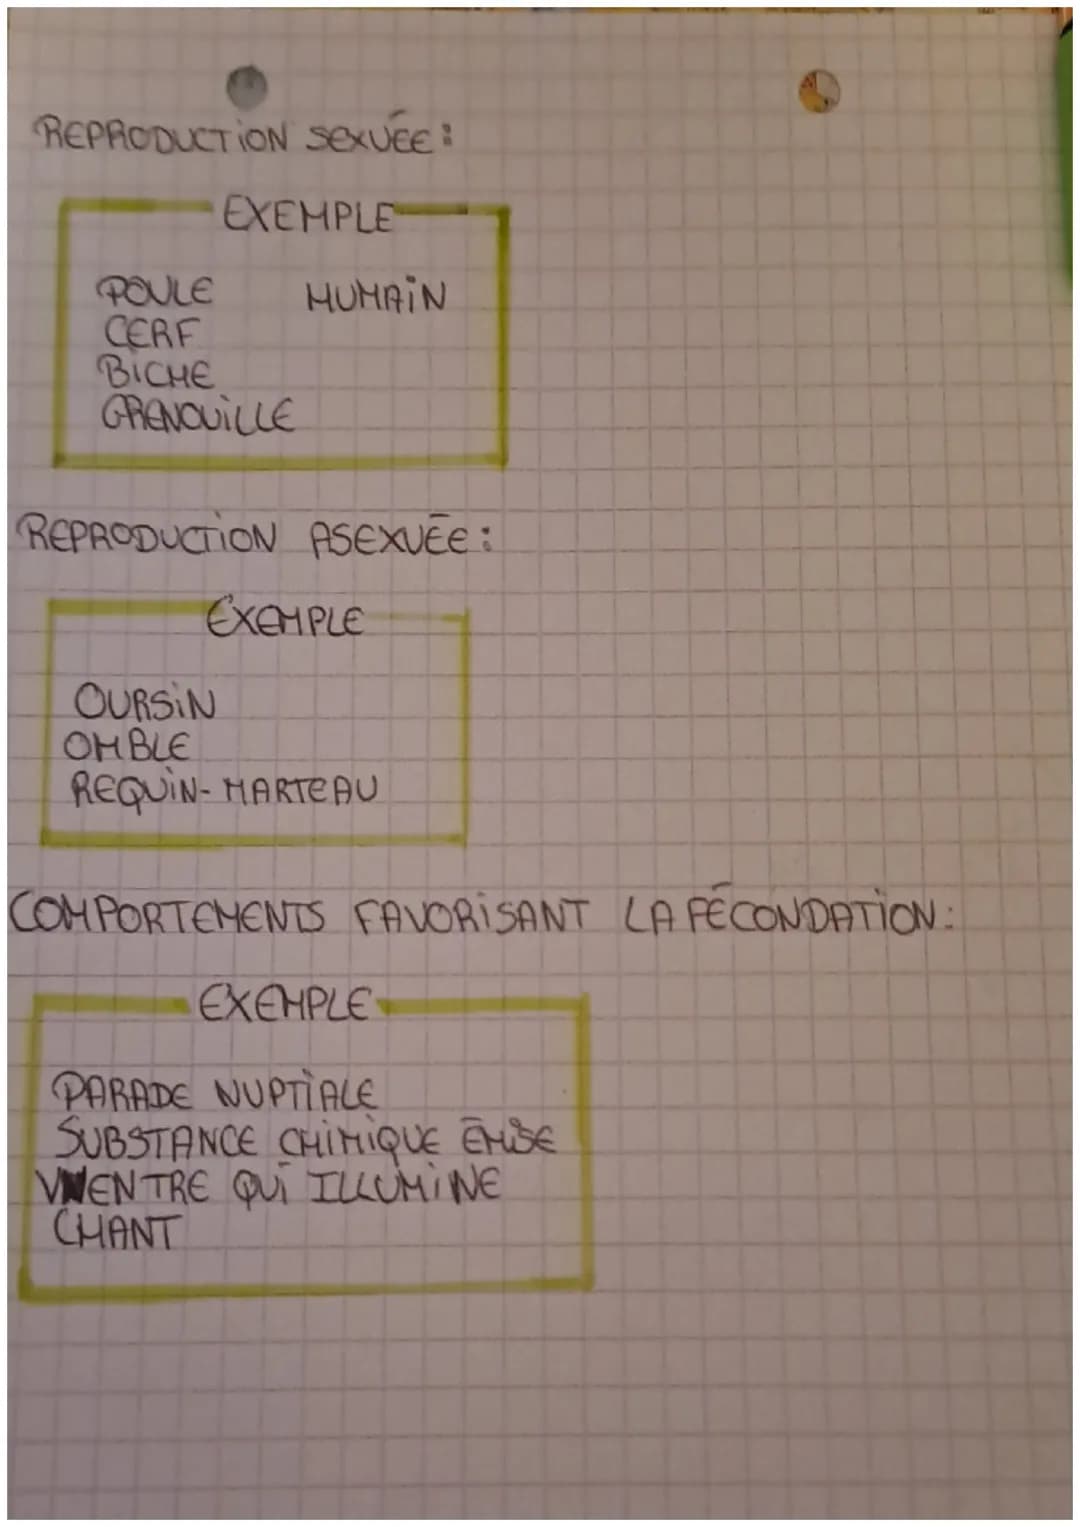 REPRODUCTION SEXUÉE :
EXEMPLE
POULE HUMAIN
CERF
BICHE
GRENOUILLE
REPRODUCTION ASEXUÉE :
EXEMPLE
OURSIN
OMBLE
REQUIN-MARTEAU
COMPORTEMENTS FAVORISANT LA FÉCONDATION :
EXEMPLE
PARADE NUPTIALE
SUBSTANCE CHIMIQUE ÉMISE
VENTRE QUI ILLUMINE
CHANT